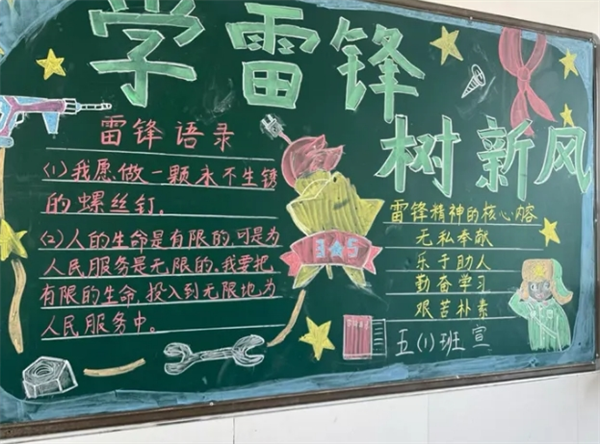 学雷锋
树新风
雷锋语录
(1)我愿做一颗永不生锈
的螺丝钉。
(2)人的生命是有限的,可是为
人民服务是无限的。我要把
有限的生命,投入到无限地为
人民服务中。
3★5
雷锋精神的核心内容
无私奉献
乐于助人
勤奋学习
艰苦朴素
五(1)班 宣